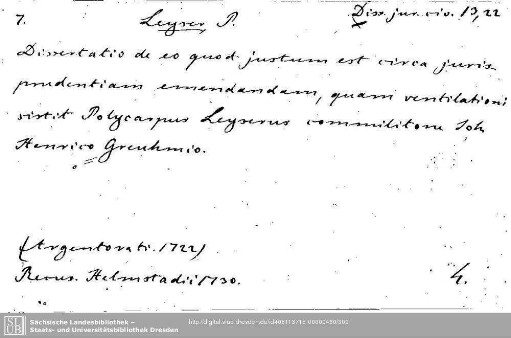 7.
Leyser P.
Diss. jur. civ. 13, 22
Dissertatio de eo quod justum est circa juris
prudentiam emendandam, quam ventilationi
sistit Polycarpus Leyserus commilitone Joh
Henrico Greuhmio.
(Argentorati. 1722)
Recus. Helmstadii 1730.
4.
Sächsische Landesbibliothek –
Staats- und Universitätsbibliothek Dresden